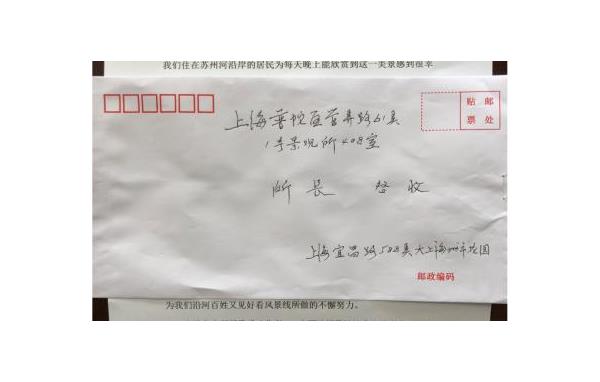 我们住在苏州河沿岸的居民为每天晚上能欣赏到这一美景感到很幸
贴 邮
票 处
上海普陀区
1号景观所408室
所长 收
上海宜昌路 大上海城市花园
邮政编码
为我们沿河百姓又见好看风景线所做的不懈努力。